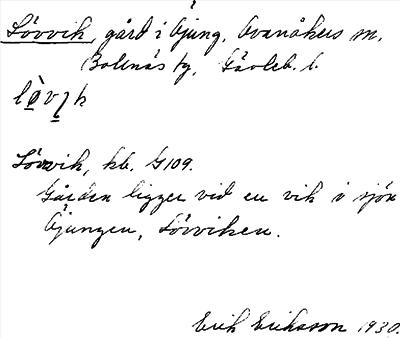 Lövvik, gård i Äjung, Ovanåkers sn,
Bollnäs tg, Gävleb. l.
Lövvik, kb. G109.
Gården ligger vid en vik i sjön
Äjungen, Lövviken.
Erik Eriksson 1930.